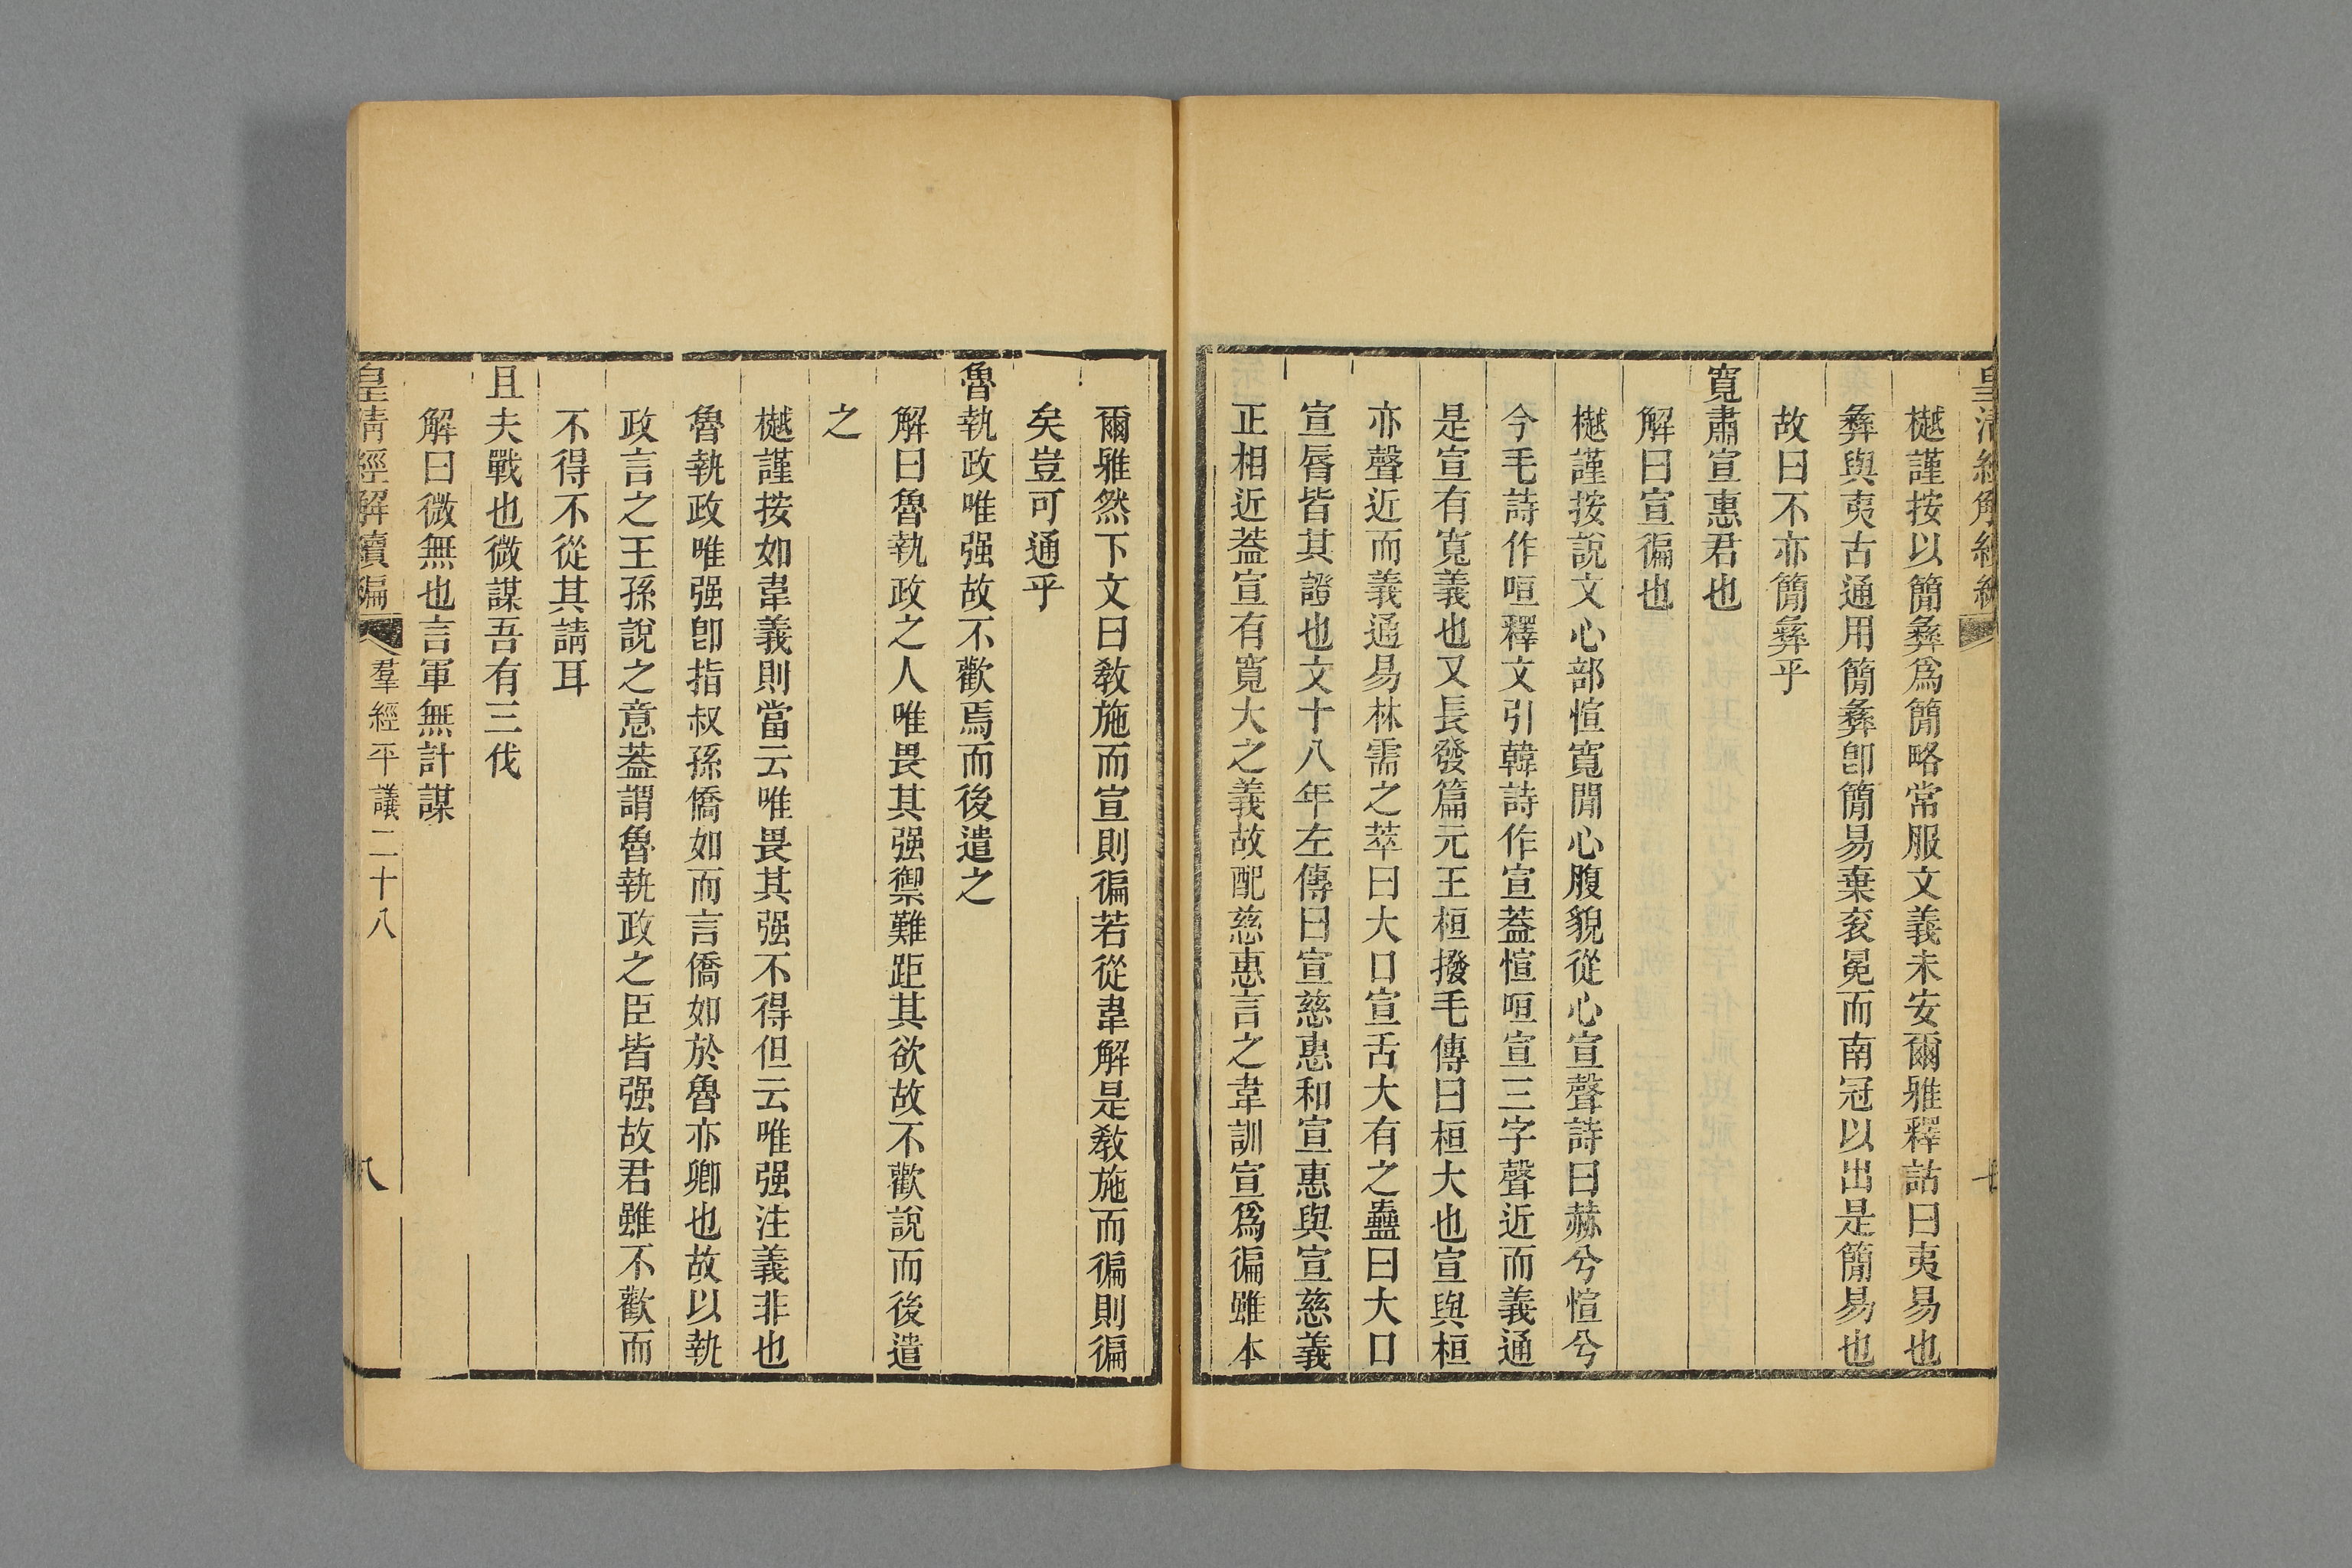 皇清經解續編
樾謹按以簡彝爲簡略常服文義未安爾雅釋詁曰夷易也
彝與夷古通用簡彝卽簡易棄袞冕而南冠以出是簡易也
故曰不亦簡彝乎
寬肅宣惠君也
解曰宣徧也
樾謹按說文心部愃寬閒心腹貌從心宣聲詩曰赫兮愃兮
今毛詩作咺釋文引韓詩作宣蓋愃咺宣三字聲近而義通
是宣有寬義也又長發篇元王桓撥毛傳曰桓大也宣與桓
亦聲近而義通易林需之萃曰大口宣舌大有之蠱曰大口
宣脣皆其證也文十八年左傳曰宣慈惠和宣惠與宣慈義
正相近蓋宣有寬大之義故配慈惠言之韋訓宣爲徧雖本
爾雅然下文曰敎施而宣則徧若從韋解是敎施而徧則徧
矣豈可通乎
魯執政唯强故不歡焉而後遣之
解曰魯執政之人唯畏其强禦難距其欲故不歡說而後遣
之
樾謹按如韋義則當云唯畏其强不得但云唯强注義非也
魯執政唯强卽指叔孫僑如而言僑如於魯亦卿也故以執
政言之王孫說之意蓋謂魯執政之臣皆强故君雖不歡而
不得不從其請耳
且夫戰也微謀吾有三伐
解曰微無也言軍無計謀
皇清經解續編 羣經平議二十八 八